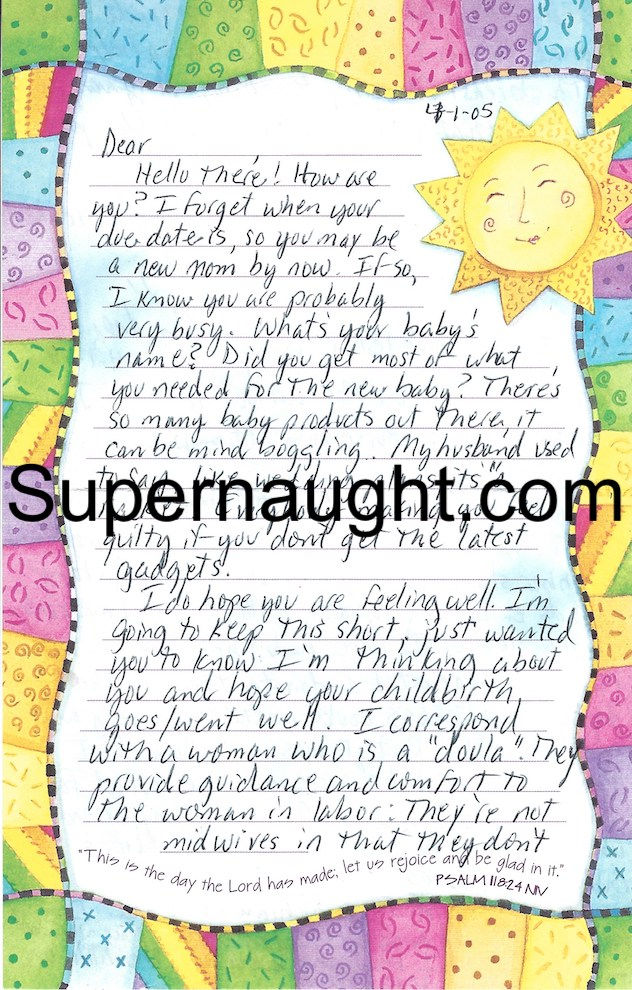 4-1-05
Dear
Hello there! How are
you? I forget when your
due date is, so you may be
a new mom by now. If so,
I know you are probably
very busy. What's your baby's
name? Did you get most of what
you needed for the new baby? There's
so many baby products out there, it
can be mind boggling. My husband used
to say, like
Supernaught.com
guilty if you don't get the latest
gadgets.
I do hope you are feeling well. I'm
going to keep this short, just wanted
you to know I'm thinking about
you and hope your childbirth
goes/went well. I correspond
with a woman who is a "doula". They
provide guidance and comfort to
the woman in labor. They're not
midwives in that they don't
"This is the day the Lord has made; let us rejoice and be glad in it."
PSALM 118:24 NIV